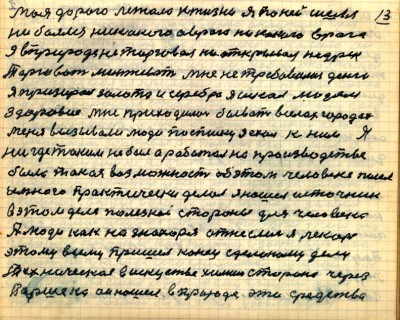 13
Моя дорога лежала к жизни я по ней шел
не боялся никакого а врага ни какого врага
Я в природе не торговал на открывал недрах
Торговать мне не требовались деньги
Я презирал золото и серебро я искал людям
Здоровие мне приходилось бывать в селах городах
меня вызывали люди по спискy я ехал к ним Я
ни где таким не был а работал на производстве
была такая возможность об этом человеке писал
много практически делал я нашел источник
в этом деле полезной стороны для человека
А люди как на знахаря отнеслись я лекарь
этому всему пришел конец сделаному делу
Техническая в искустве химии сторона через
Паршека он нашел в природе эти средства